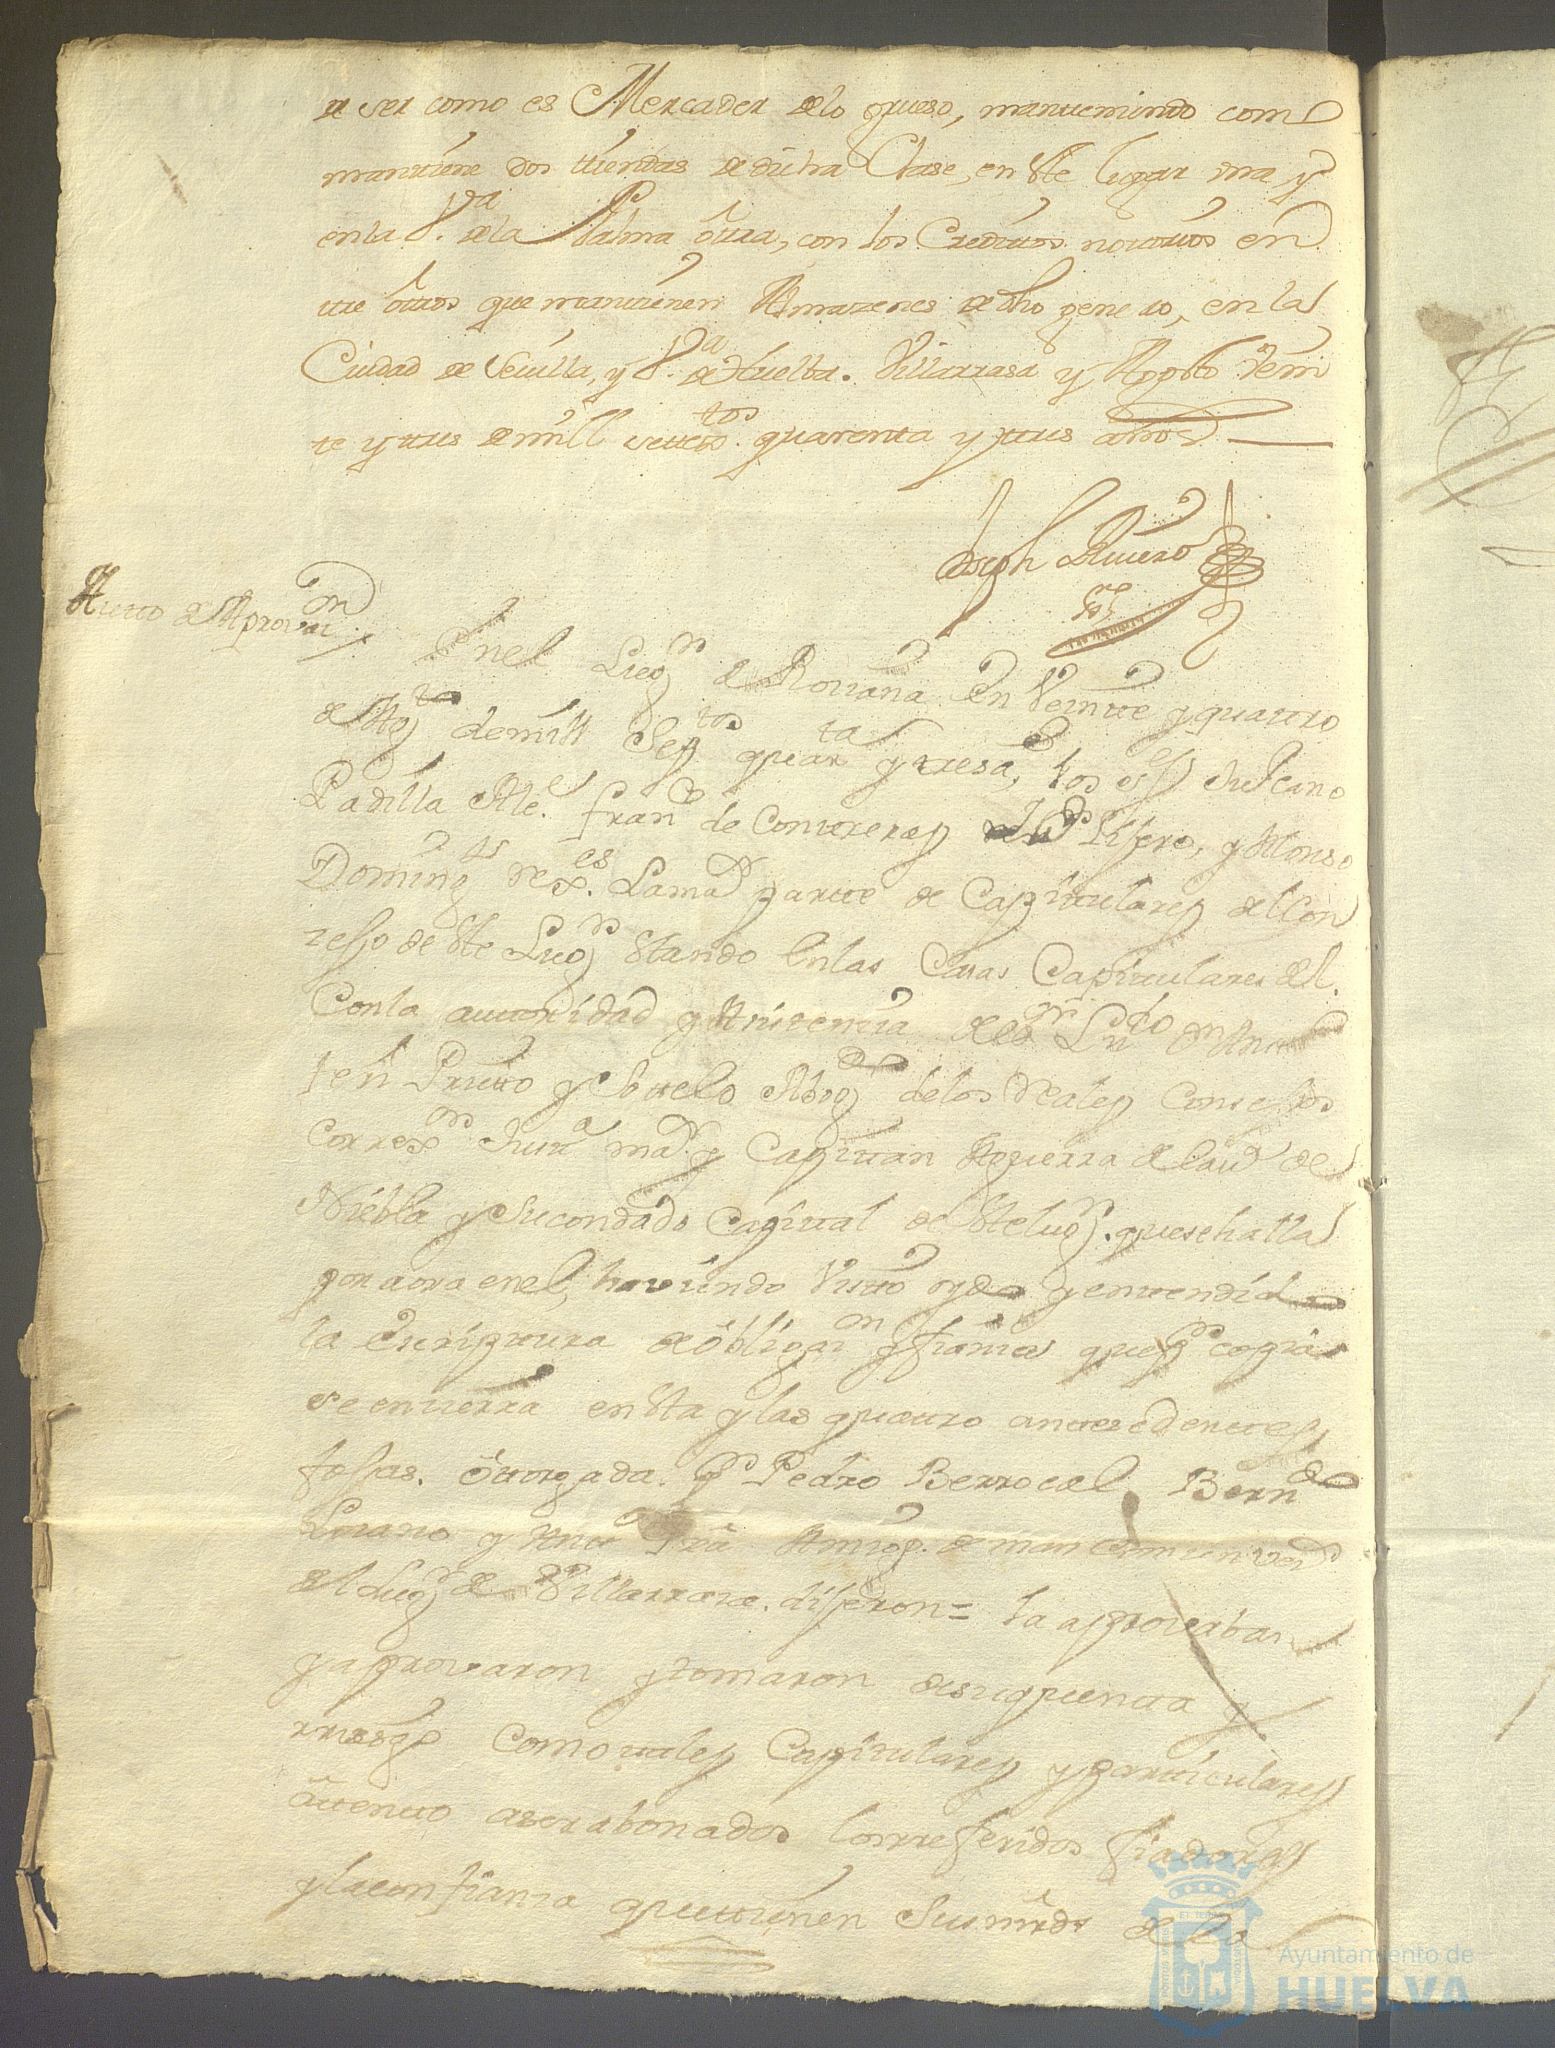 de ser como es Mercader de lo grueso, manteniendo como
mantiene dos tiendas de dicha Clase, en este lugar una, y
en la V.ª de la Palma otra, con los Creditos notorios en
tre otros que mantienen Almazenes de dho genero, en la
Ciudad de Sevilla, y V.ª de Huelba. Villarrasa y Agosto Vein
te y tres de mill settec.tos quarenta y tres años
Joseph Rivero
Auto de Aprovaz.on
En el Lug.r de Rociana en Veinte y quattro
de Ag.to de mill Set.tos quar.ta y tres a.s los ss.es
Padilla Alc.e Fran.co de Contreras Pisero, y Alonso
Doming.s Rex.es la ma.r parte de Capitulares del Con
cejo de este Lug.r estando en las Casas Capitulares del.
Con la autoridad y Asistencia del S.r Liz.do D.n
Prieto y Abog.do de los Reales Consejos
Correx.r Just.a ma.r y Capittan Aguerra de la V.a de
Niebla y Su condado Capittal de este lug.r que se halla
por aora en el, haviendo Visto oydo y entendido
la Escriptura de obligaz.on y fianza que p.r copia
se enzierra en esta y las quattro antesedentes
fojas. ottorgada. p.r Pedro Berrocal, Bern.do
Lozano y de mancomun vez.s
del Lug.r de Villarrasa. dijeron = la aprovaban
y aprovaron y tomaron de su quenta y
riesgo como tales Capitulares y particulares
attento a ser abonados los referidos fiadores
y la confianza que tienen Sus mrds de la
Ayuntamiento de
HUELVA